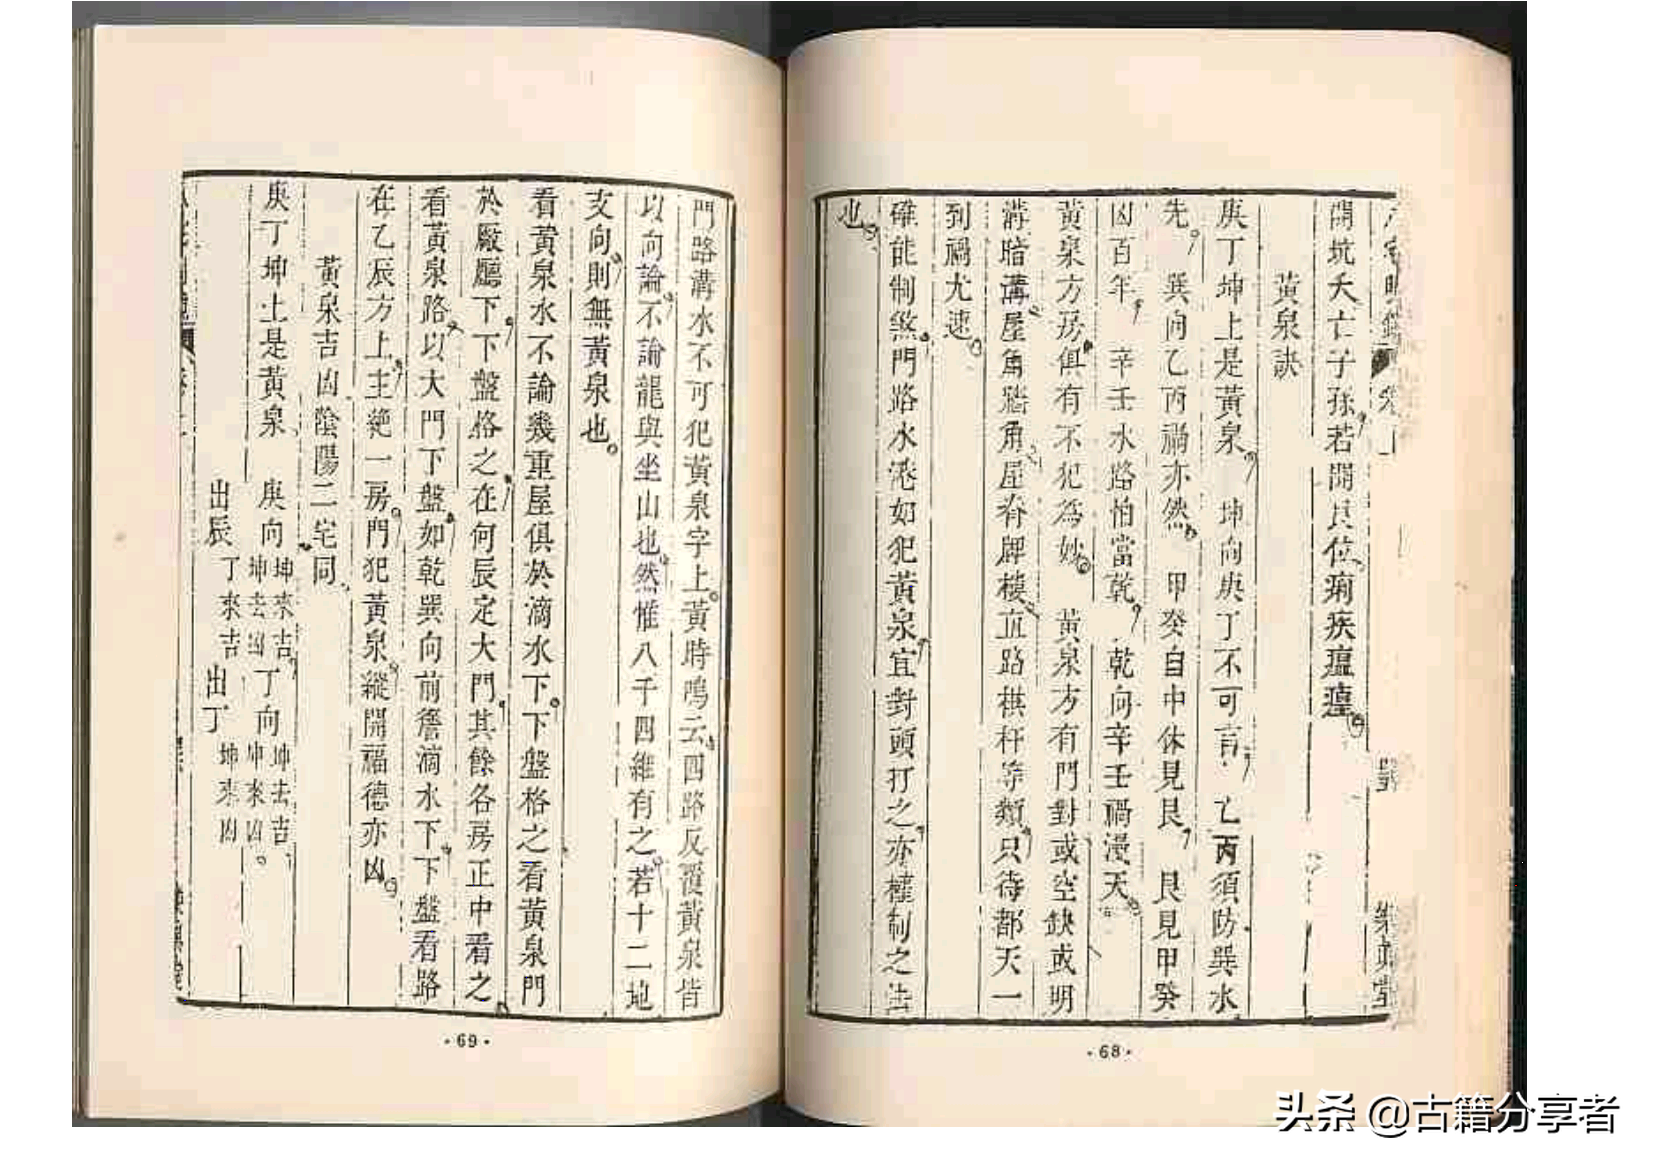 開坑夭亡子孫若開艮位癎疾瘟㾮
黃泉訣
庚丁坤上是黃泉 坤向庚丁不可言 乙丙須防巽水
先 巽向乙丙禍亦然 甲癸自中休見艮 艮見甲癸
凶百年 辛壬水路怕當乾 乾向辛壬禍漫天
黃泉方房俱有不犯為妙 黃泉方有門對或空缺或明
溝暗溝屋角牆角屋脊牌樓直路棋杆等類只待都天一
到禍尤速
碓能制煞門路水港如犯黃泉宜對頭打之亦權制之法
也
·68·
門路溝水不可犯黃泉字上黃時鳴云四路反覆黃泉皆
以向論不論龍與坐山也然惟八干四維有之若十二地
支向則無黃泉也
看黃泉水不論幾重屋俱於滴水下下盤格之看黃泉門
於廠廳下下盤格之在何辰定大門其餘各房正中看之
看黃泉路以大門下盤如乾巽向前簷滴水下下盤看路
在乙辰方上主絶一房門犯黃泉縱開福德亦凶
黃泉吉凶陰陽二宅同
庚丁坤上是黃泉 庚向 坤來吉 坤去凶 丁向 坤去吉 坤來凶
出辰 丁來吉 出丁 坤來凶
·69·
头条 @古籍分享者